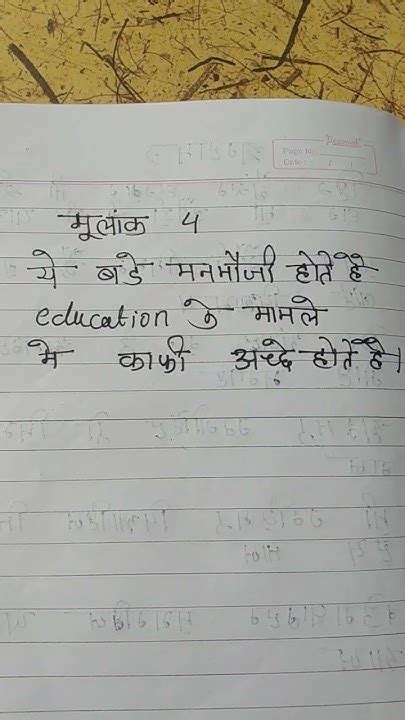 Page No.
Date:
मूलांक 4
ये बडे मनमौजी होते है
education के मामले
मे काफी अच्छे होते है।